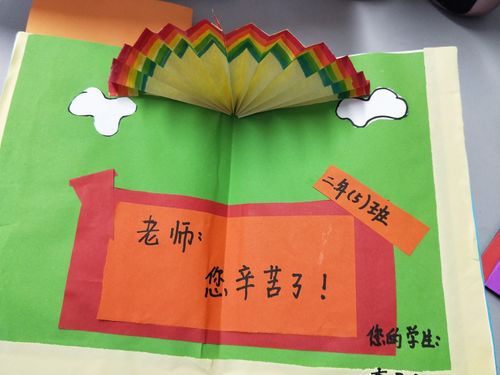 二年(5)班
老师:
您辛苦了!
您的学生: